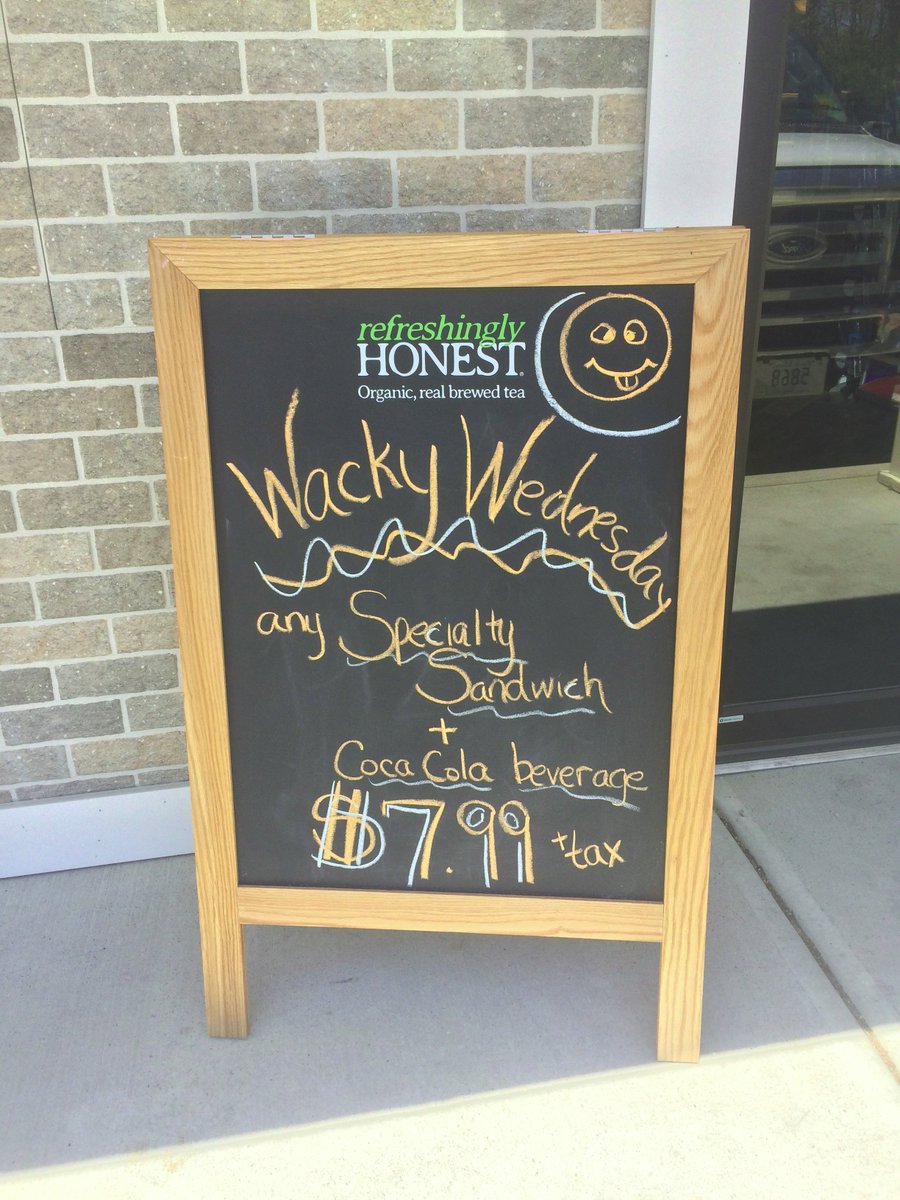 refreshingly
HONEST®
Organic, real brewed tea
Wacky Wednesday
any Specialty
Sandwich
+
Coca Cola beverage
$7.99 + tax